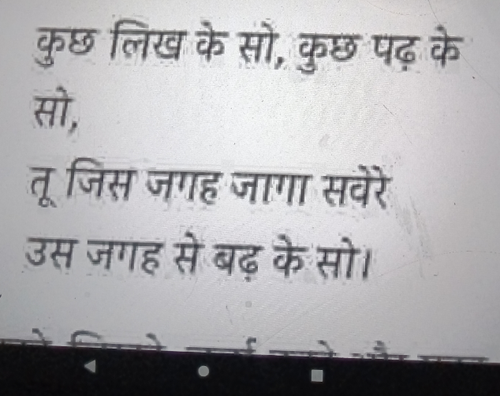 कुछ लिख के सो, कुछ पढ़ के
सो,
तू जिस जगह जागा सवेरे
उस जगह से बढ़ के सो।